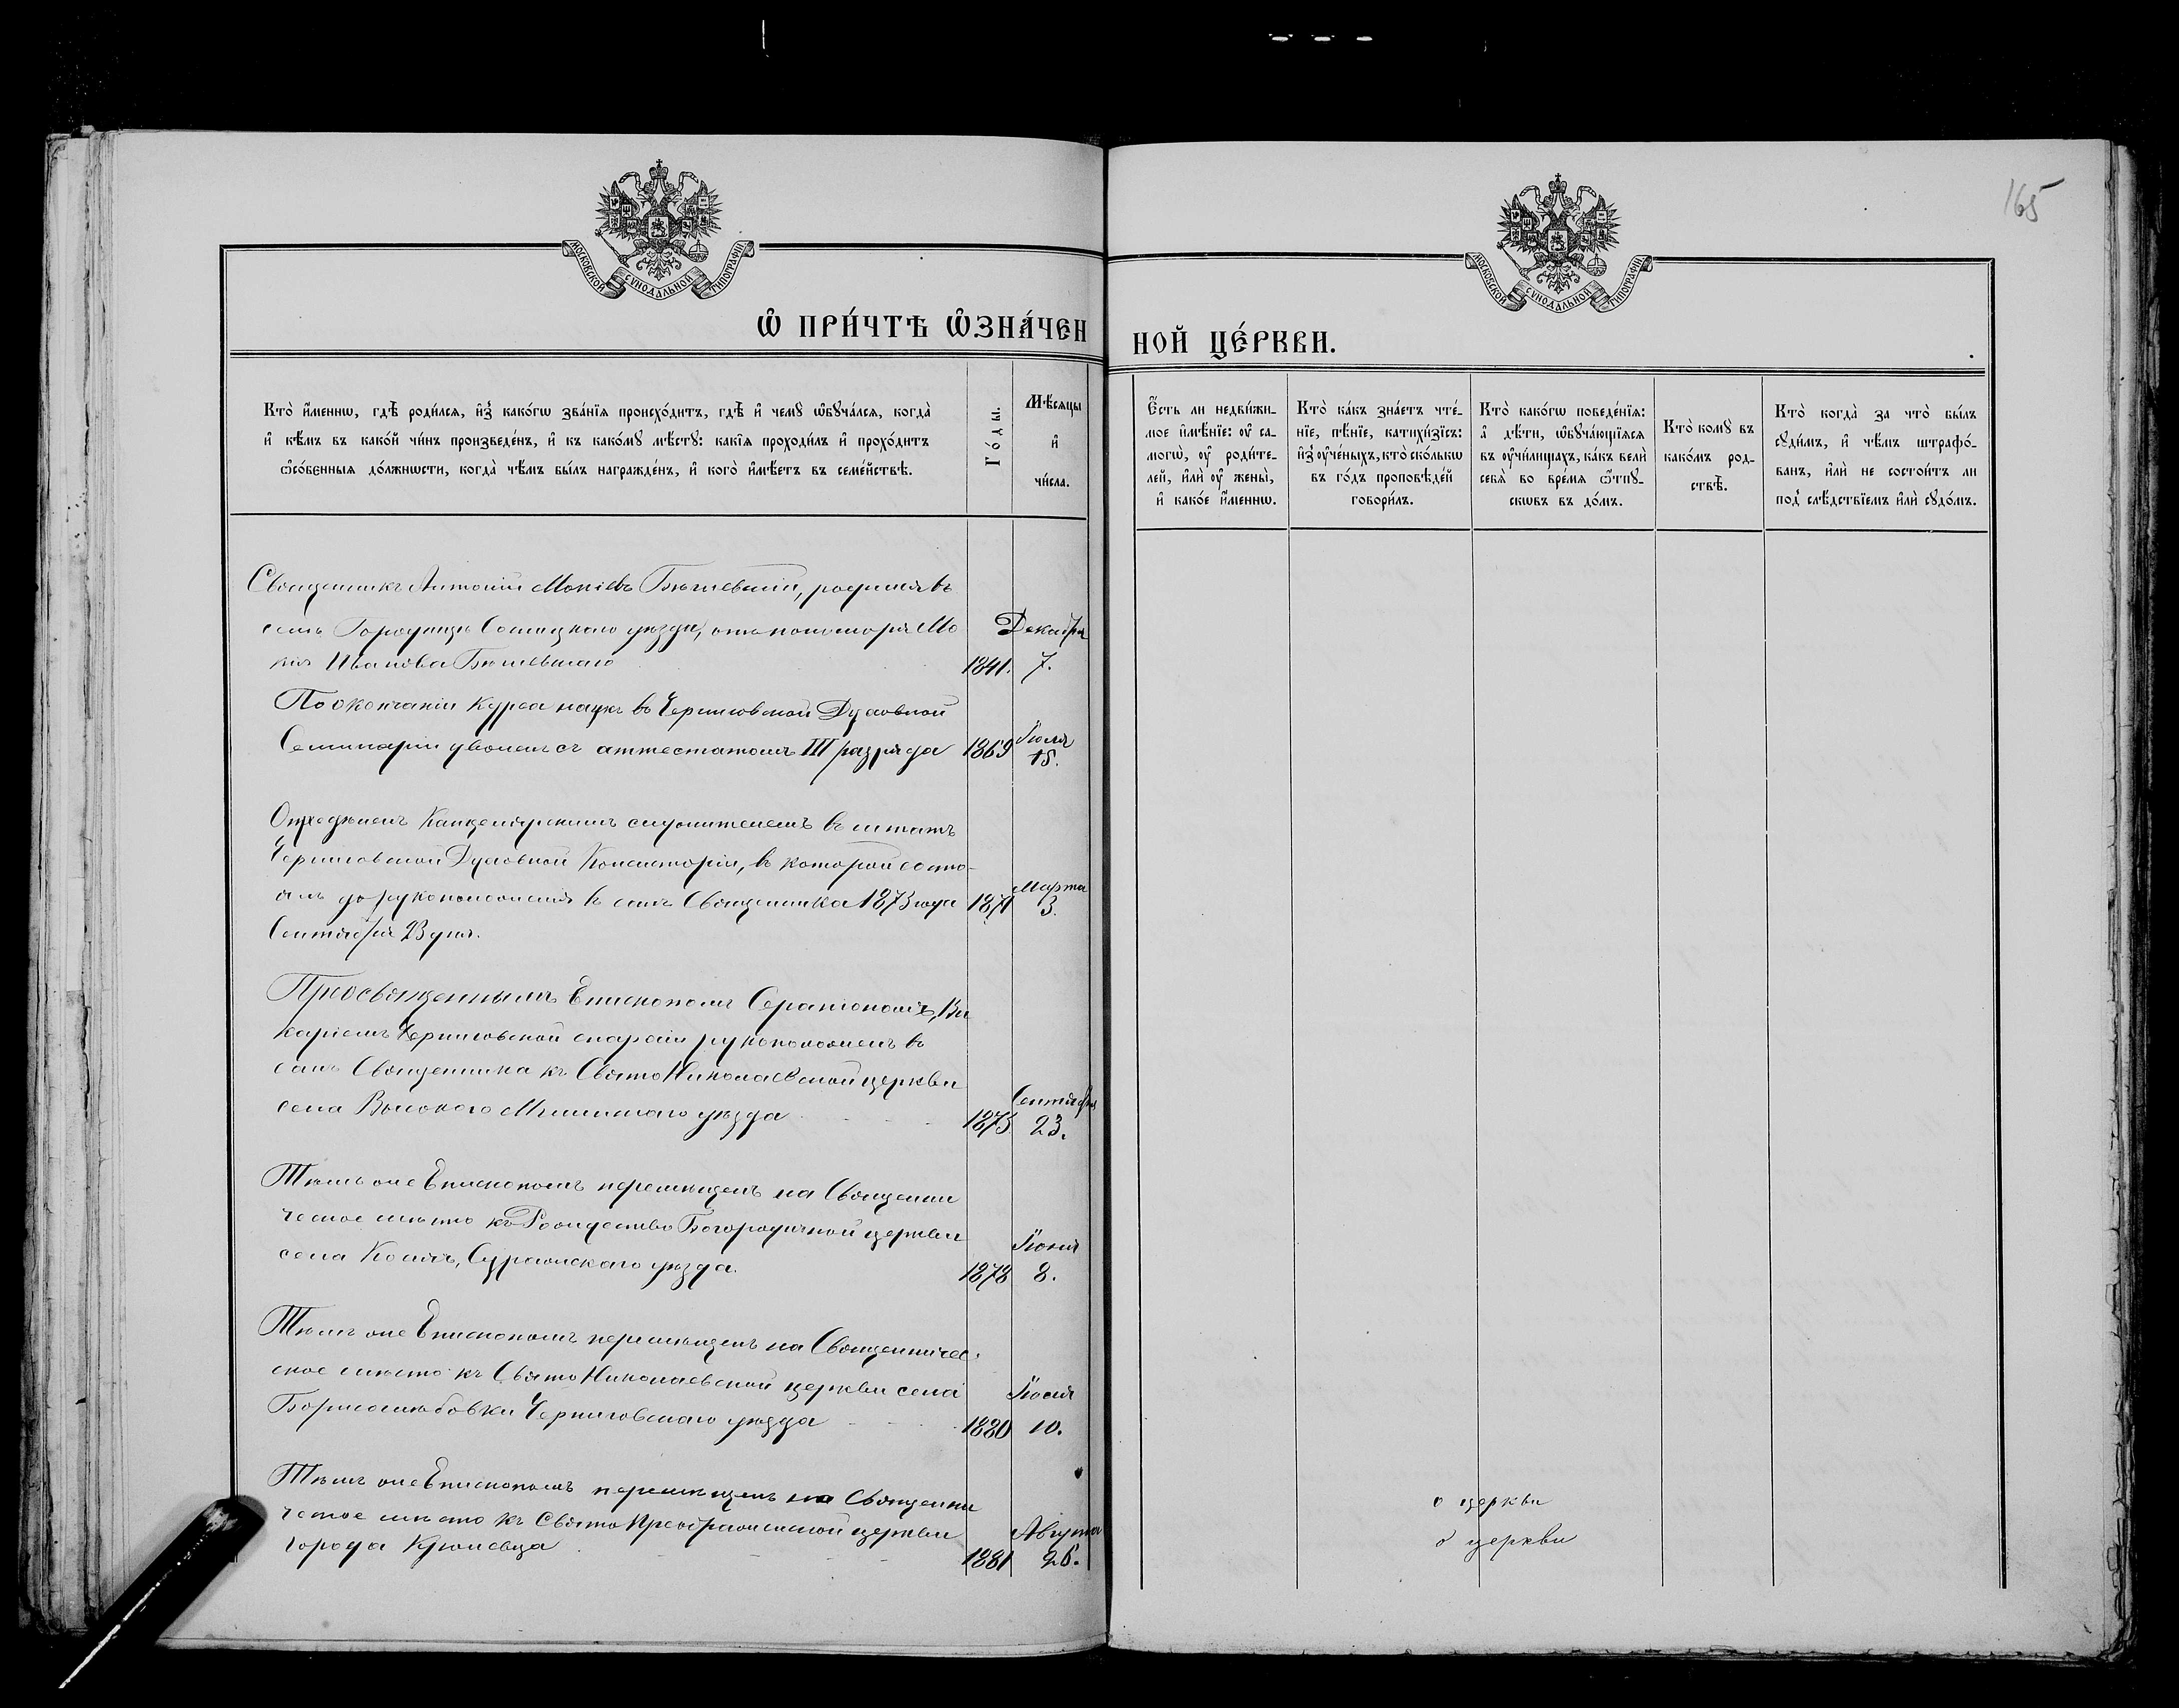 165
МОСКОВСКОЙ СУНОДАЛЬНОЙ ТИПОГРАФІИ
МОСКОВСКОЙ СУНОДАЛЬНОЙ ТИПОГРАФІИ
Ѡ҆ ПРИ́ЧТѢ Ѡ҆ЗНА́ЧЕННОЙ ЦЕ́РКВИ.
Кто̀ и҆́меннѡ, гдѣ̀ роди́лся, и҆з̾ како́гѡ зва́нїя происхо́дитъ, гдѣ̀ и҆ чемꙋ̀ ѡ҆бꙋча́лся, когда̀
и҆ кѣ́мъ въ како́й чи́нъ произведе́нъ, и҆ къ како́мꙋ мѣ́стꙋ: какі̑я проходи́лъ и҆ прохо́дитъ
ѻ҆со́бенныя до́лжнѡсти, когда̀ чѣ́мъ бы́лъ награжде́нъ, и҆ кого̀ и҆мѣ́етъ въ семе́йствѣ.
Го́ды.
Мѣ́сяцы
и҆
чи́сла.
Е҆́сть ли недви́жи-
мое и҆мѣ́нїе: ᲂу҆ са-
могѡ̀, ᲂу҆ роди́те-
лей, и҆лѝ ᲂу҆ жены̀,
и҆ како́е и҆́меннѡ.
Кто̀ ка́къ зна́етъ чте́-
нїе, пѣ́нїе, катихи́зїсъ:
и҆з̾ ᲂу҆че́ныхъ, кто̀ ско́лькѡ
въ го́дъ проповѣ́дей
говори́лъ.
Кто̀ како́гѡ поведе́нїя:
а҆ дѣ́ти, ѡ҆бꙋча́ющїяся
въ ᲂу҆чи́лищахъ, ка́къ велѝ
себя̀ во вре́мя ѿпꙋ-
скѡвъ въ до́мъ.
Кто̀ комꙋ̀ въ
како́мъ род-
ствѣ̀.
Кто̀ когда̀ за что̀ бы́лъ
сꙋди́мъ, и҆ чѣ́мъ штрафо́-
ванъ, и҆лѝ не состои́тъ ли
под̾ слѣ́дствїемъ и҆лѝ сꙋдо́мъ.
Священникъ Антоній Мокіевъ родился въ
селѣ Городищѣ Сосницкаго уѣзда, отъ пономаря Мо
кія Иванова
1841. Декабря 7.
По окончаніи курса наукъ въ Черниговской Духовной
Семинаріи уволенъ съ аттестатомъ III разряда
1869 Іюля 15.
Опредѣленъ Канцелярскимъ служителемъ въ штатъ
Черниговской Духовной Консисторіи, въ которой состо-
ялъ до рукоположенія въ санъ Священника 1873 года
Сентября 23 дня.
1871 Марта 3.
Преосвященнымъ Епископомъ Серапіономъ, Ви
каріемъ Черниговской епархіи рукоположенъ въ
санъ Священника къ Свято Николаевской церкви
села Высокого Мглинскаго уѣзда
1873 Сентября 23.
Тѣмъ же Епископомъ перемѣщенъ на Священни
ческое мѣсто къ Рождество Богородичной церкви
села Сурожскаго уѣзда.
1878 Іюня 8.
Тѣмъ же Епископомъ перемѣщенъ на Священничес-
ское мѣсто къ Свято Николаевской церкви села
Черниговскаго уѣзда
1880 10.
Тѣмъ же Епископомъ перемѣщенъ на Священни
ческое мѣсто къ Свято Преображенской церкви
города Кролевца
1881 Августа 26.
о церкви
о церкви